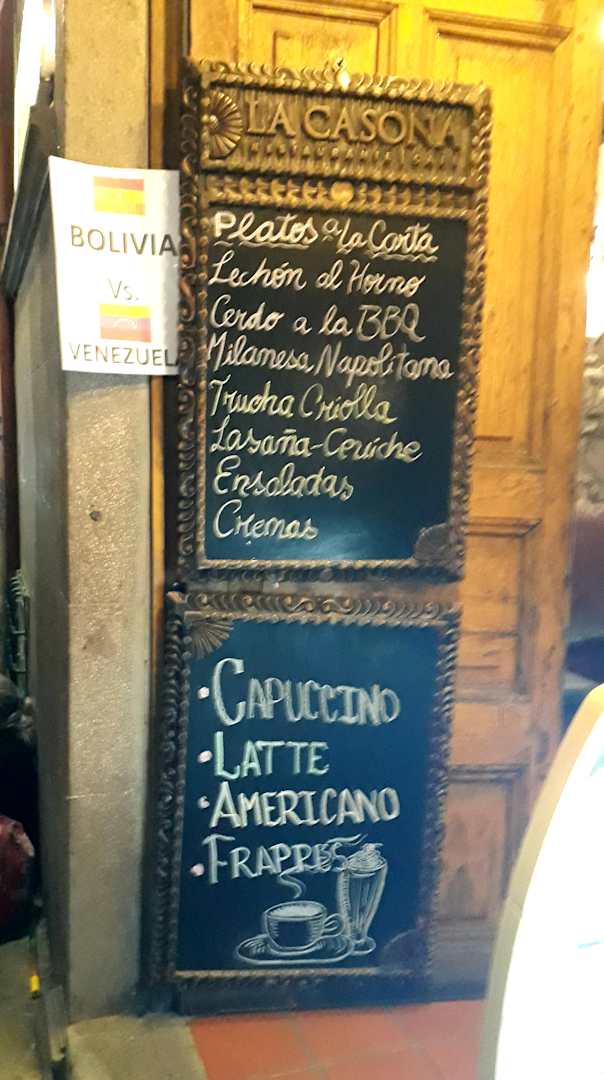 BOLIVIA
Vs.
VENEZUEL
LA CASONA
Platos a la Carta
Lechón al Horno
Cerdo a la BBQ
Milanesa Napolitana
Trucha Criolla
Lasaña-Ceviche
Ensaladas
Cremas
• CAPUCCINO
• LATTE
• AMERICANO
• FRAPPES